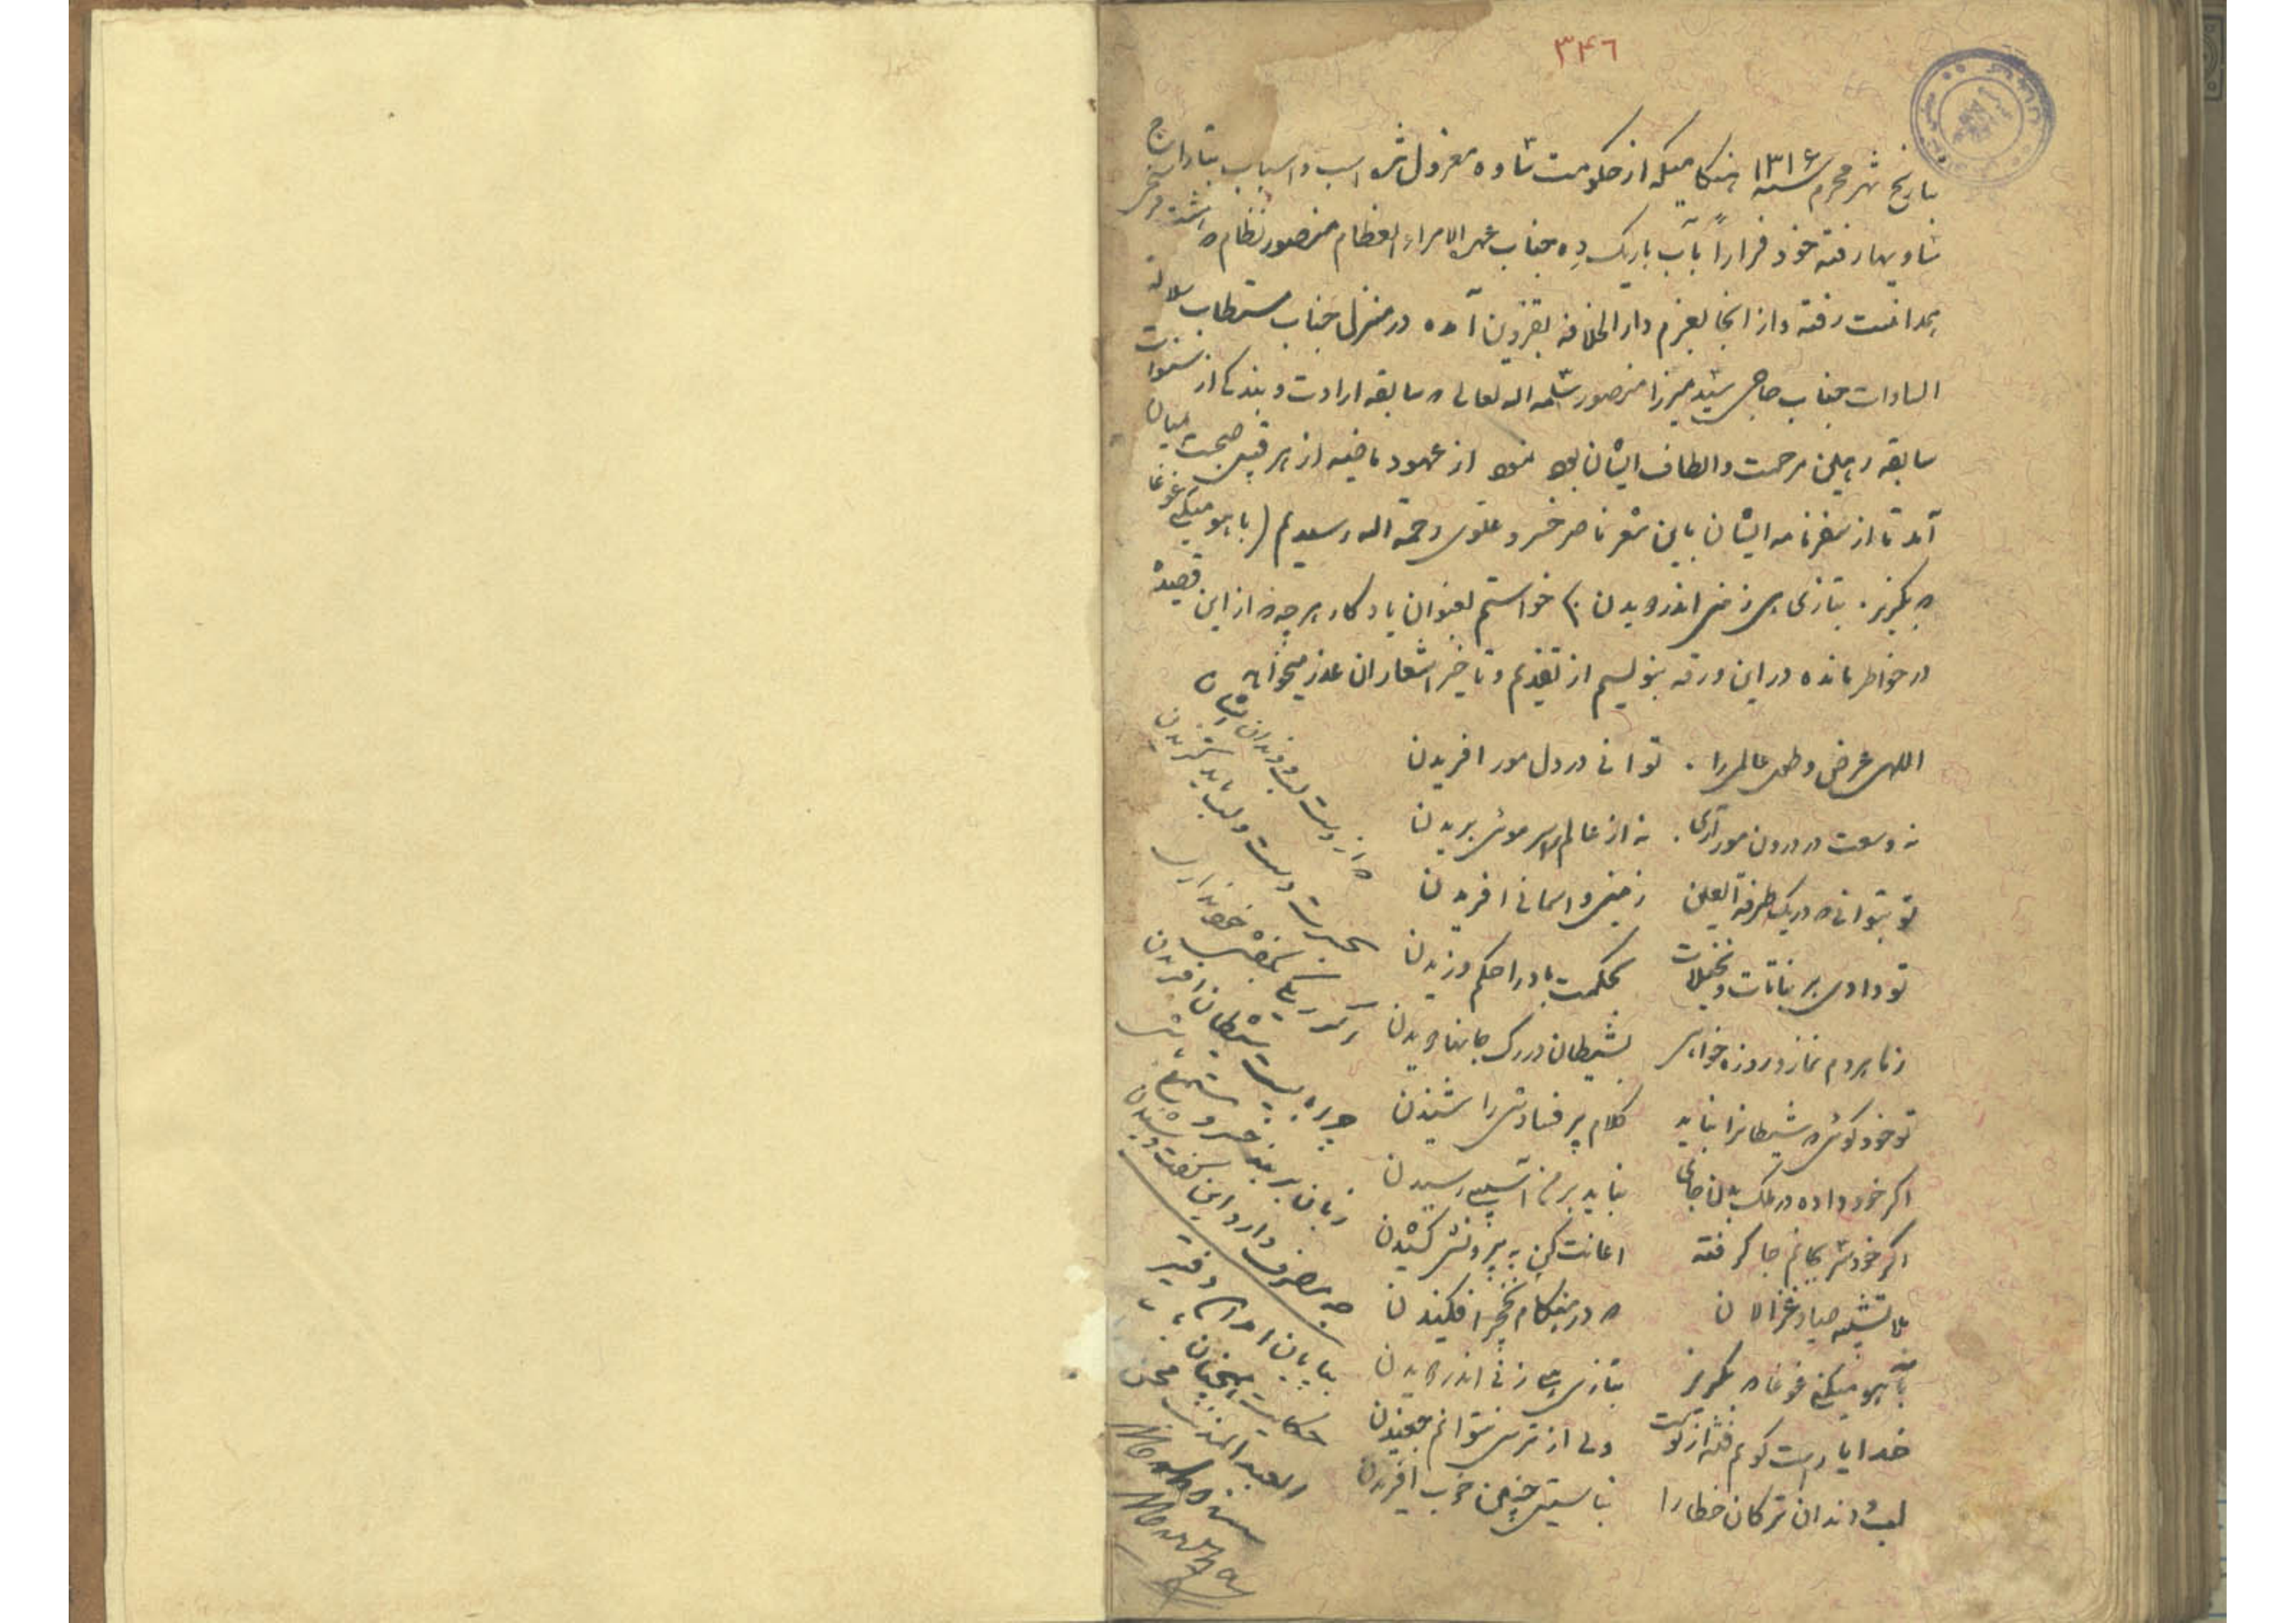 ۳۴۶
بتاریخ شهر محرم سنه ۱۳۱۶ هنگامیکه از حکومت شاوه معزول شد اسب و اسباب بتاراج
شاویها رفته خود فراراً بآب باریک ده جناب عمدة الامراء العظام منصور نظام
رفته و از انجا بعزم دار الخلافه بقزوین آمده در منزل جناب مستطاب سلالة
السادات جناب حاجی سید میرزا منصور سلمه اله تعالی که سابقه ارادت و بندگی از سنوات
سابقه رهین مرحمت و الطاف ایشان بوده از عهود ماضیه از هر قبیل صحبت میان
آمد تا از سفرنامه ایشان باین شعر ناصر خسرو علوی رحمة اله رسیدیم (بآهو میکنی غوغا
که بگریز . بتازی هی زنی اندر دویدن) خواستم بعنوان یادگار هر چه از این قصیده
در خاطر مانده در این ورقه بنویسم از تقدیم و تاخیر اشعار ان عذر میخواهم
الهی عرض و طول عالمرا . توانی در دل مور افریدن
نه وسعت در درون مور آری . نه از عالم سر موئی بریدن
تو بتوانی که در یک طرفة العین زمینی و اسمانی افریدن
تو دادی بر نباتات و نخیلات بحکمت باد را حکم وزیدن
زما بردم نماز و روزه خواهی بشیطان در رگ جانها دویدن
تو خود گوئی که شیطانرا نباید کلام پر فسادش را شنیدن
اگر خود داده در ملک بدن جای نباید بر من آسیبی رسیدن
اگر خودش بجانم جا گرفته اعانت کن به بیرونش کشیدن
بلا تشبیه صیاد غزالان که در هنگام نخچیر افکنیدن
بآهو میکنی غوغا که بگریز بتازی هی زنی اندر دویدن
خدایا راست گویم فتنه از توست ولی از ترس نتوانم جغیدن
لب و دندان ترکان خطا را نبایستی چنین خوب افریدن
که از دست لب و دندان ایشان
بحسرت دست و لب باید گزیدن
اگر ریگی بکفش خود نداری
چرا بایست شیطان افریدن
زبان بربند خسرو
چه مصرف دارد این گفت و شنیدن
بپایان آمد این دفتر
حکایت همچنان
العبد المذنب محسن